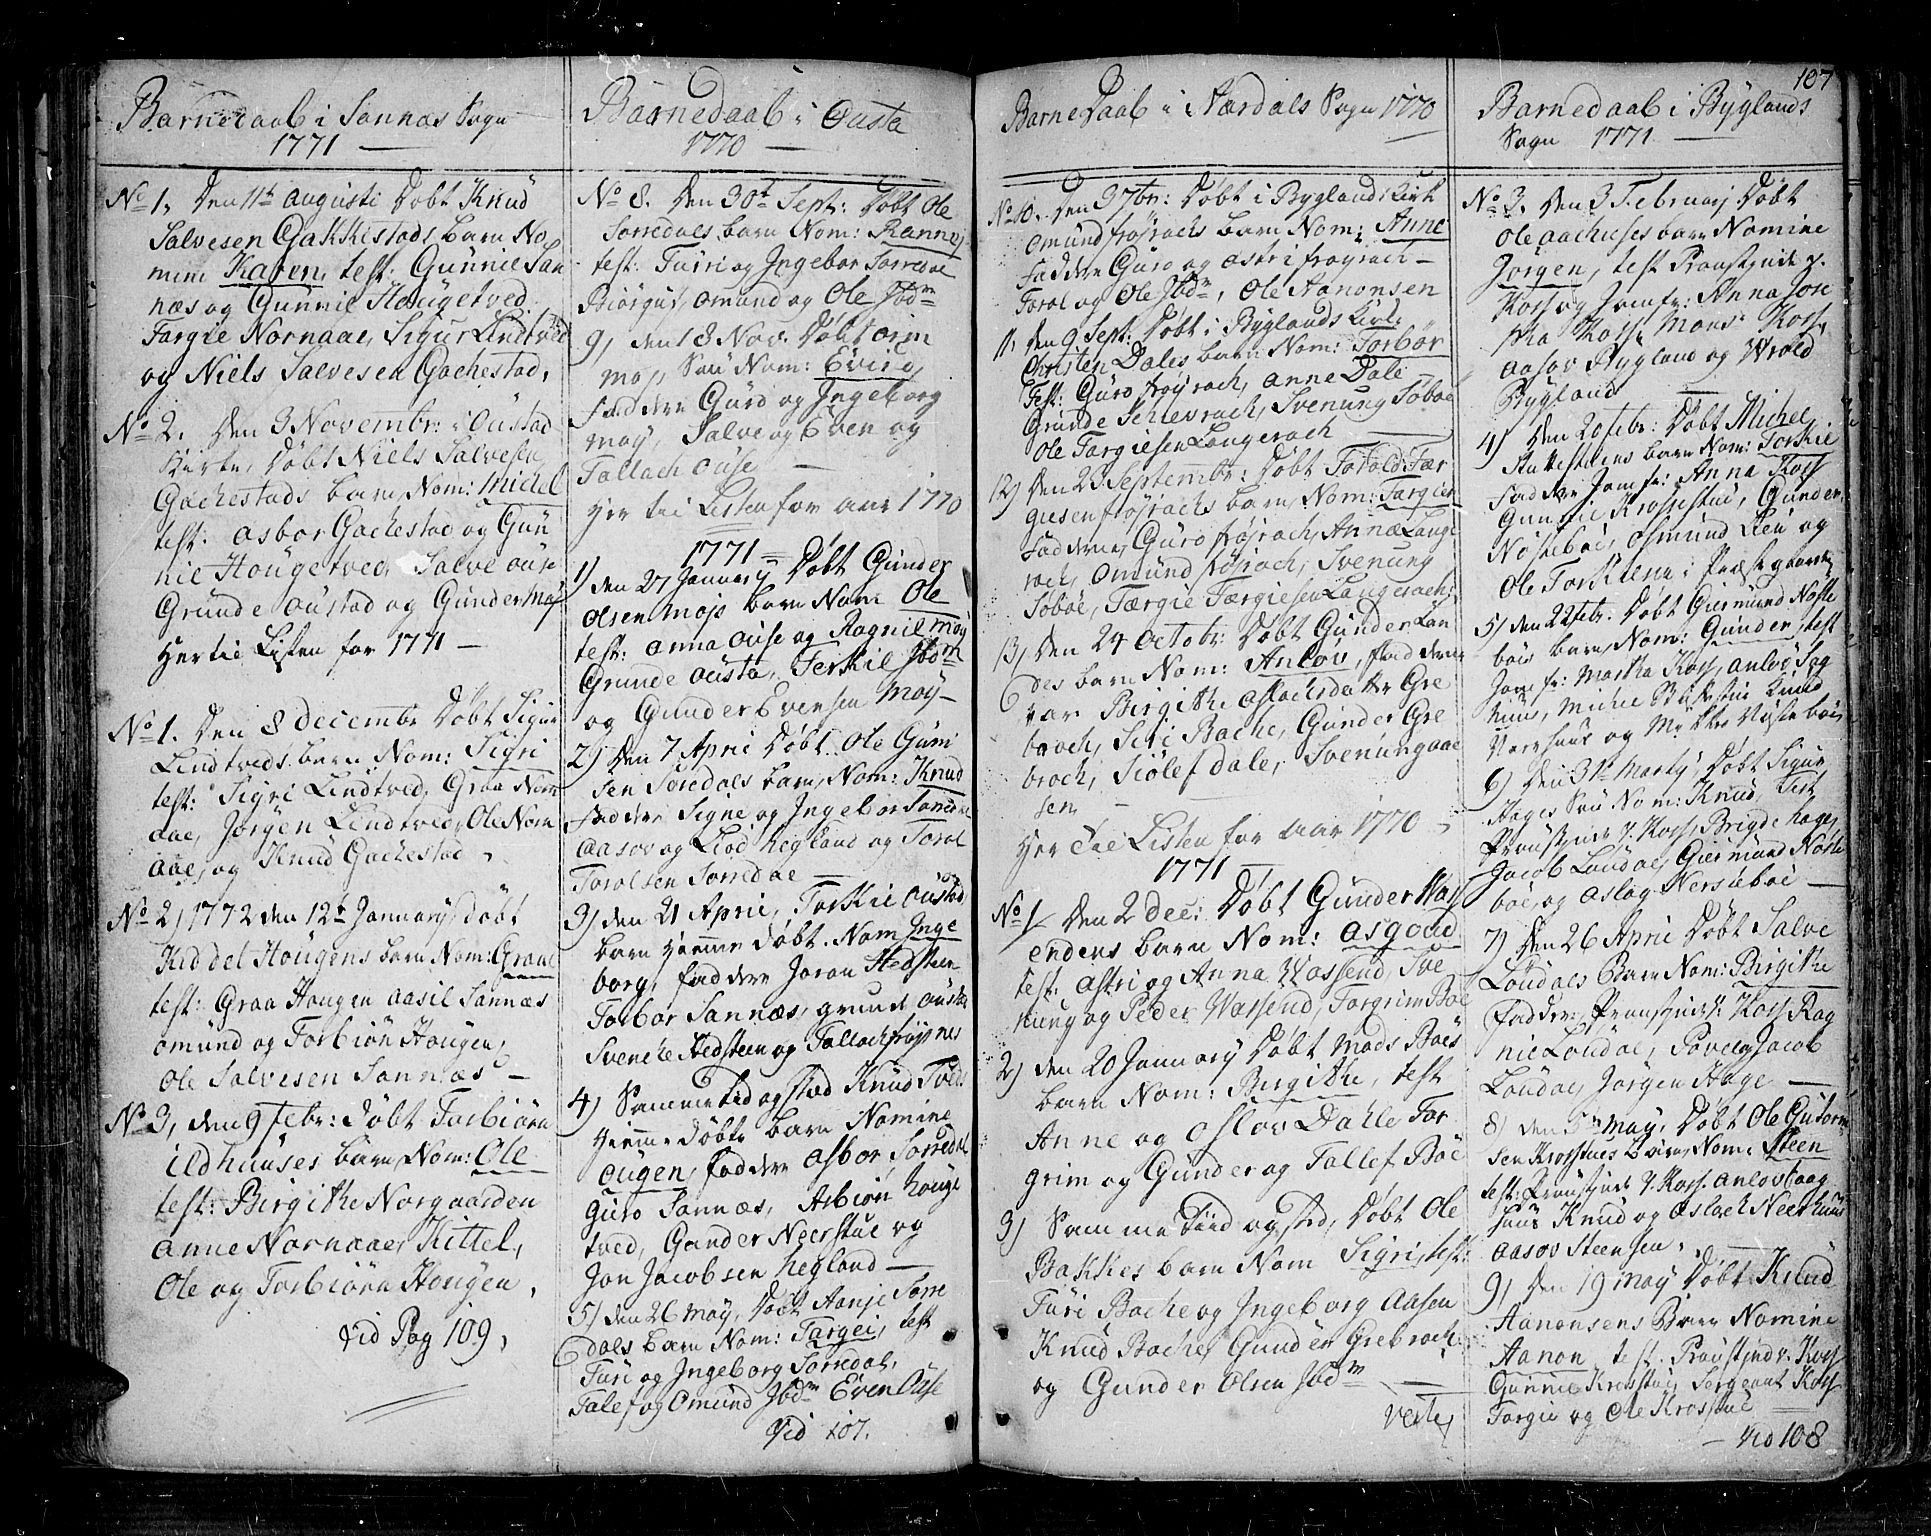 Barnedaab i Sannæs Sogn
1771 —
No 1, Den 11t Augusti Døbt Knud
Salvesen Gakkestads barn No
mine Karen, test: Gunnil San
næs og Gunnil Hougetved
Targie Nornaae, Sigur Lindtved
og Niels Salvesen Gachestad,
No 2. Den 3 Novembr: i Oustad
Kirke, Døbt Niels Salvesen
Gachestads barn, Nom: Michel
test: Asbor Gachestad og Gun
nil Hougetved, Salve Ouse
Grunde Oustad og Gunder Moÿ
Her til Listen for 1771 —
No 1. Den 8 Decembr Døbt Sigur
Lindtveds barn Nom: Sigri
test: Sigri Lindtved, Graa Norn
aae, Jørgen Lindtved, Ole Norn
aae, og Knud Gachestad,
No 2, 1772 den 12t January, døbt
Kiddel Hougens barn Nom: Graae
test: Graa Hougen Aasil Sannæs
Omund og Torbiøn Hougen,
Ole Salvesen Sannæs —
No 3, den 9 febr: Døbt Torbiørn
Ildhuuses barn, Nom: Ole
test: Birgithe Norgaarden
Anne Nornaae, Kittel,
Ole og Torbiørn Hougen,
Vid Pag 109,
Barnedaab i Ousta
1770 —
No 8. Den 30t Sept: Døbt Ole
Sorredals barn Nom: Kannej
test: Turi og Ingebor Sorredal
Biørgus, Omund og Ole Jbdm
9, den 18 Nov. Døbt Orm
Moÿs Søn Nom: Evind,
faddere Guro og Ingeborg
Moÿ, Salve og Even og
Tallach Ouse —
Her til Listen for aar 1770
1771 —
1) Den 27 January Døbt Gunder
Olsen Mojs barn Nom Ole
test: Anna Ouse og Ragnil Moÿ
Grunde Ousta, Terkil Jbdm
og Gunder Evensen Moÿ —
2) Den 7 April Døbt Ole Gun
sen Soredals barn, Nom: Knud
faddere Signe og Ingebor Sorredal
Aasov og Liød Hegland og Torol
Torolsen Sorredal —
3) den 21 April, Torkil Oustad
barn hiemme døbt. Nom Inge
borg, faddere Joran Stedsteen
Torbor Sannæs, Grunde Ousta
Svenke Stedsteen og Tallach frøÿsnes
4) Samme tid og sted Knud Tveds
hiemme døbte barn Nomine
Ougen, faddere Asbor Sorredal
Guro Sannæs, Asbiøn Houge
tved, Gunder Neerstue og
Jon Jacobsen Hegland —
5) den 26 May, Døbt Aanji Sorre
dals barn Nom: Targei, test
Turi og Ingeborg Sorredal,
Talef og Omund Jbdm Even Ouse
Vid 107.
Barnedaab i Nærdals Sogn 1770
No 10. Den 3 7br: Døbt i Byglands Kirk
Omund frøjrachs barn Nom: Anne
faddere Guro og Astri frøyrach —
Torol og Ole Jbdm, Ole Aanonsen
11, den 9 Sept: Døbt i Byglands Kirk:
Christen Dales barn Nom: Torbor
Test: Guro frøyrach, Anne Dale —
Grunde Schievrach, Svenung Søbøe
Ole Targiesen Langerach —
12) Den 23 Septembr: Døbt Torold Tær
giesen frøjrachs barn, Nom: Targier
fadderne, Guro frøjrach, Anne Lange
rach, Omund frøjrach, Svenung
Søbøe, Tærgie Tærgiesen Langerach;
13) Den 24 Octobr: Døbt Gunder Lan
des barn Nom: Anlov, fadderne
var Birgithe Aslachsdatter Gre
broch, Siri Bache, Gunder Gre
broch, Siølef Dale, Svenung Aae
sen — —
Her til Listen for aar 1770 —
1771 —
No 1/ Den 2 Dec: Døbt Gunder Vas
endens barn Nom: Asgond
test: Astri og Anna Vassend, Sve
nung og Peder Vassend, Torgrim Bøe
2) den 20 January Døbt Mads Bøes
barn Nom: Birgithe, test
Anne og Oslov Dahle Tor
grim og Gunder og Tollef Bøe
3) Samme tiid og sted, Døbt Ole
Bakkes barn Nom Sigri, test:
Turi Bache og Ingeborg Aasen
Knud Bache, Gunder Grebroch
og Gunder Olsen Jbdm —
Verte,
107
Barnedaab i Byglands
Sogn 1771 —
No 3. Den 3 February Døbt
Ole Aachuses barn Nomine
Jørgen, test Proustinde v.
Koss og Jomfr: Anna Jose
pha Koss, Mons: Koss,
Aasov Bygland og Wrold
Bygland —
4) Den 20 febr: Døbt Michel
Stukesteens barn Nom: Torkil
faddere Jomfr: Anna Koss
Gunnil Krossestue, Gunder
Nøstebøe, Osmund Lien og
Ole Torkilena i Præstegaarden
5) den 22 febr. Døbt Giermund Nøste
bøes barn, Nom: Gunder, test
Jomfr: Martha Koss, Anlov Sag
huus, Michel Stukesteen Knud
Neerhuus og Mikkel Nøstebøe
6) Den 31t Marty, Døbt Sigur
Hages Søn Nom: Knud, Test
Proustinde v. Koss, Brigde hage,
Jacob Loudal, Giermund Nøste
bøe, og Aslag Nersiebøe —
7) Den 26 April Døbt Salve
Loudals Barn Nom: Birgithe
Fadder: Proustinde v: Koss Rag
nil Loudal, Povel og Jacob
Loudal, Jørgen Hage —
8) den 5t May, Døbt Ole Gutorm
sen Krosstues Barn, Nom: Steen
test: Proustinde v. Koss. Anlov Aag
huus Knud og Aslach Neerhuus
Aasov Steensen,
9) Den 19 May Døbt Knud
Aanonsens Barn Nomine
Aanon, test. Proustind v. Koss
Gunnil Krosstue, Sergeant Koss
Targie og Ole Krosstue —
— Vid 108